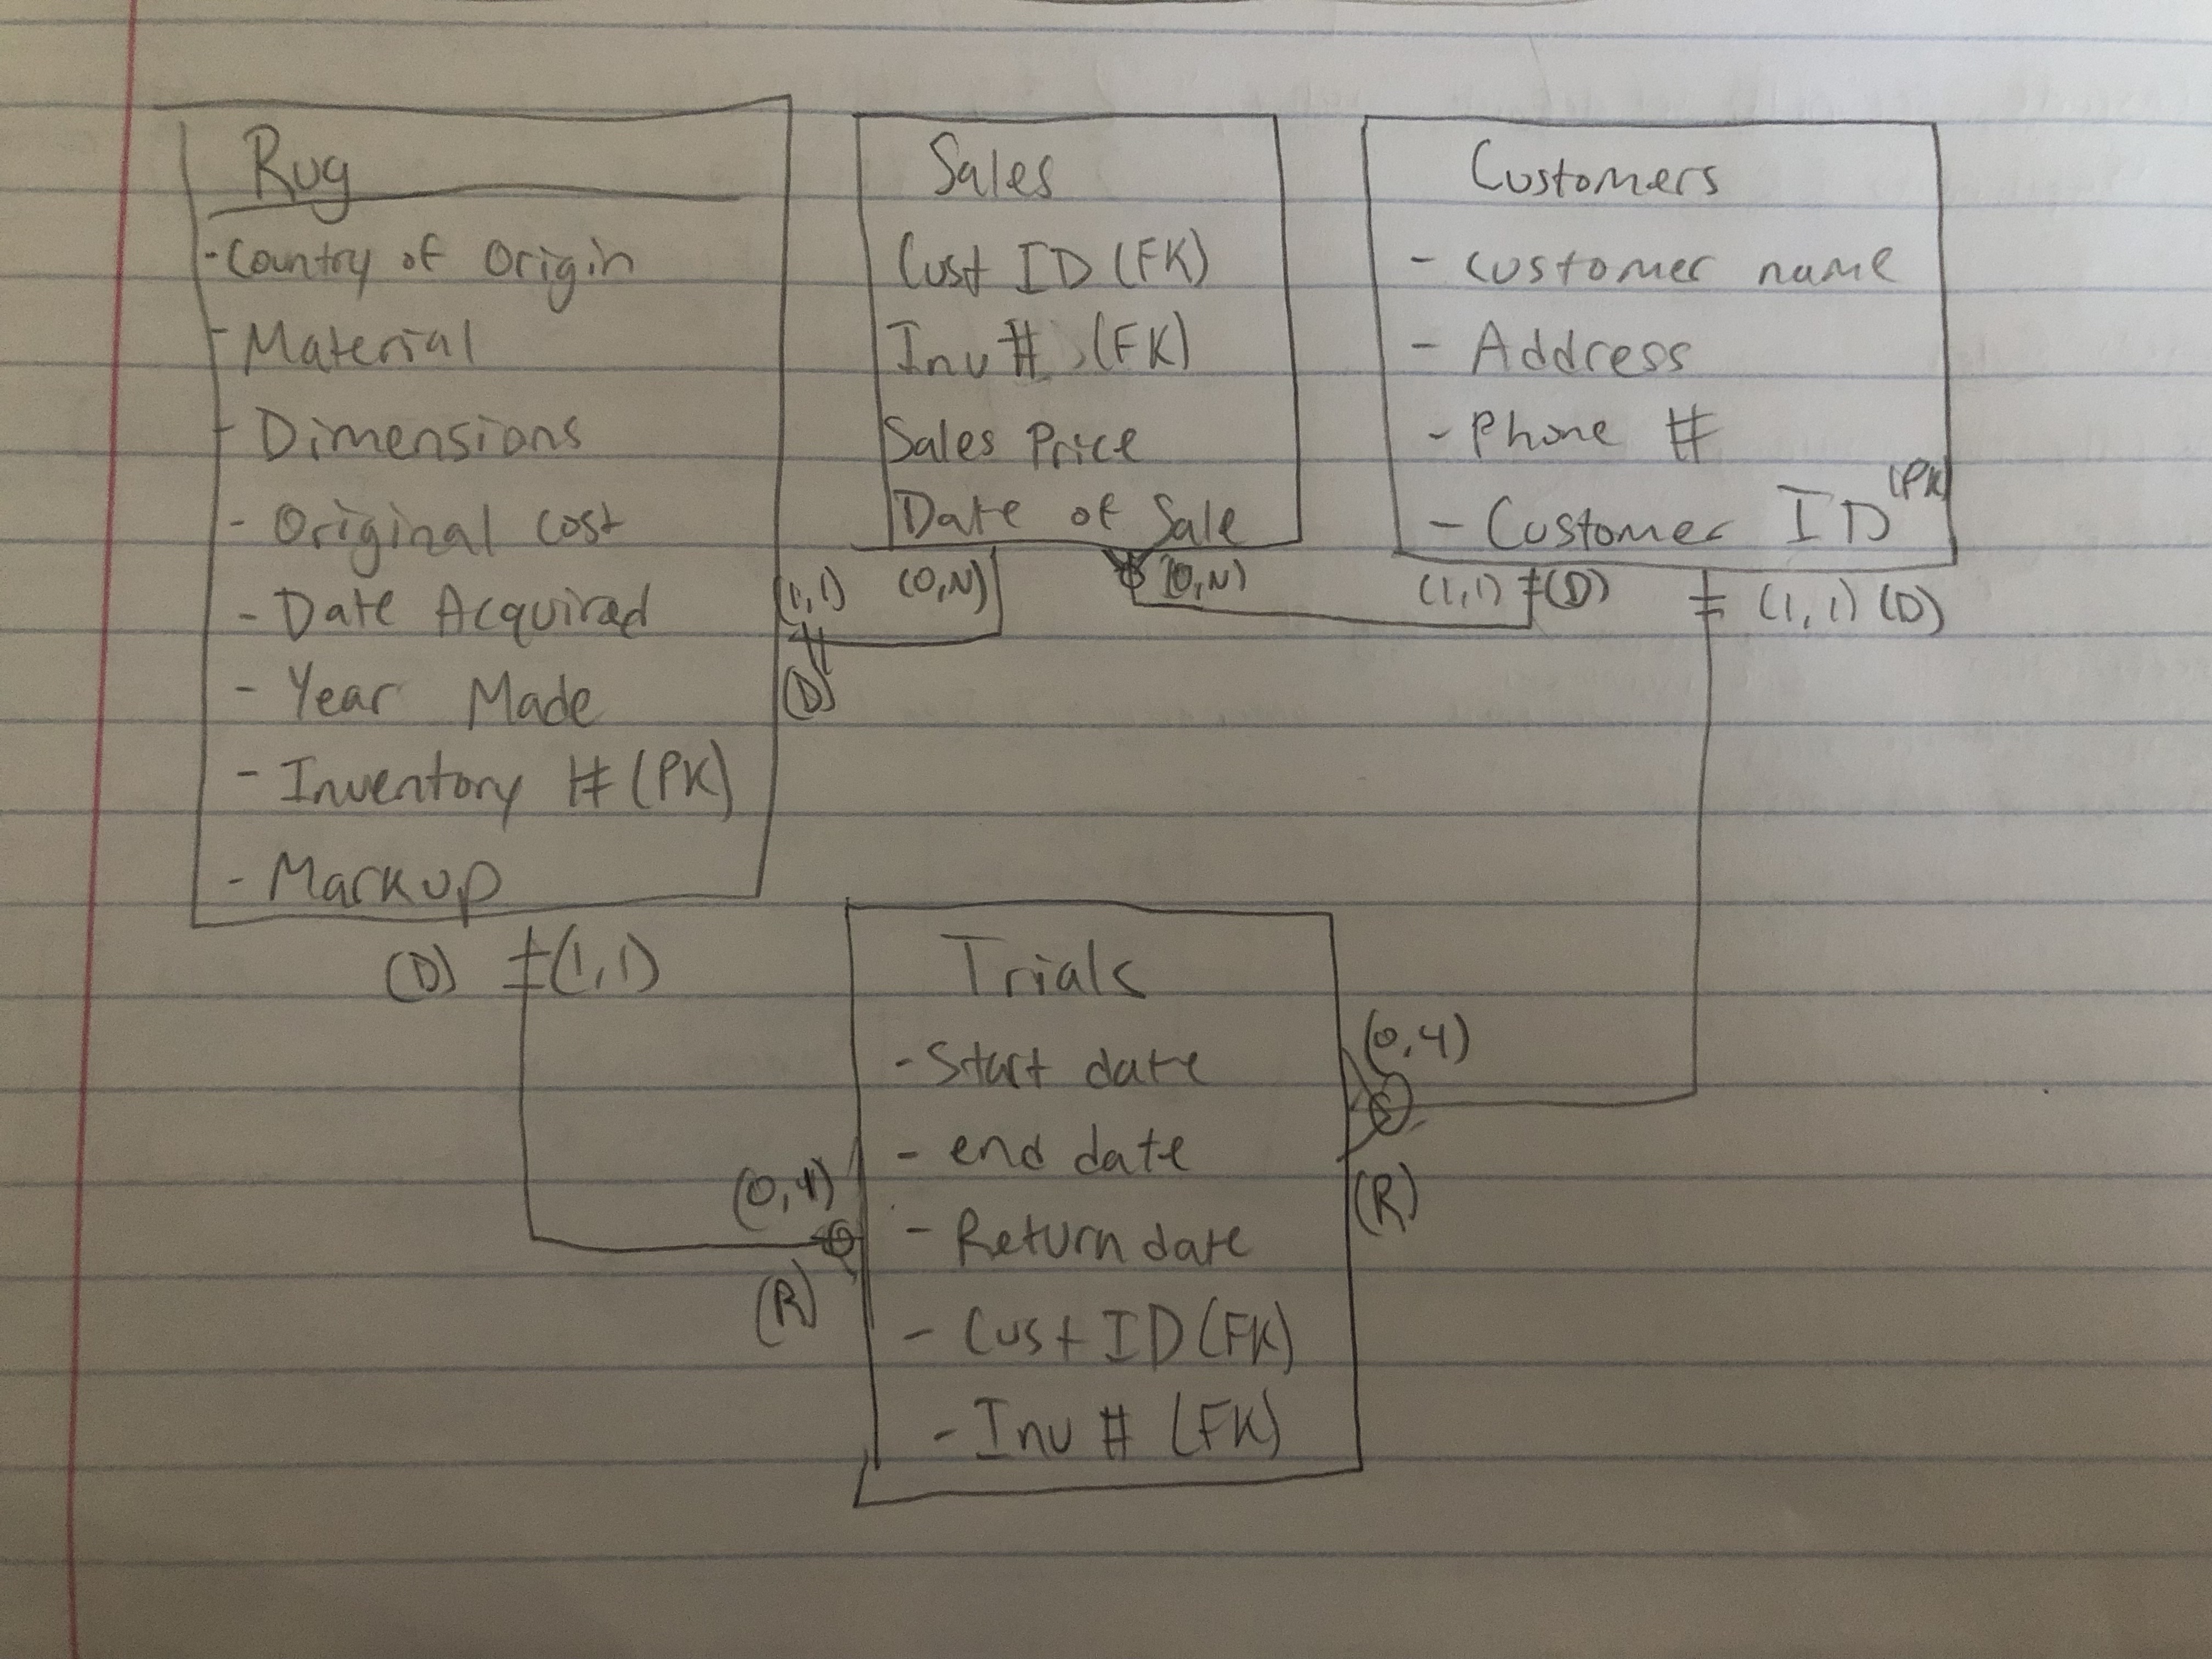 Rug
- Country of Origin
- Material
- Dimensions
- Original cost
- Date Acquired
- Year Made
- Inventory # (PK)
- Markup
(D) (1,1)
Sales
Cust ID (FK)
Inv # (FK)
Sales Price
Date of Sale
(1,1) (0,N) (0,N)
(D)
Customers
- customer name
- Address
- Phone #
- Customer ID (PK)
(1,1) (D) (1,1) (D)
Trials
- Start date
- end date
- Return date
- Cust ID (FK)
- Inv # (FK)
(0,4)
(R)
(0,4)
(R)